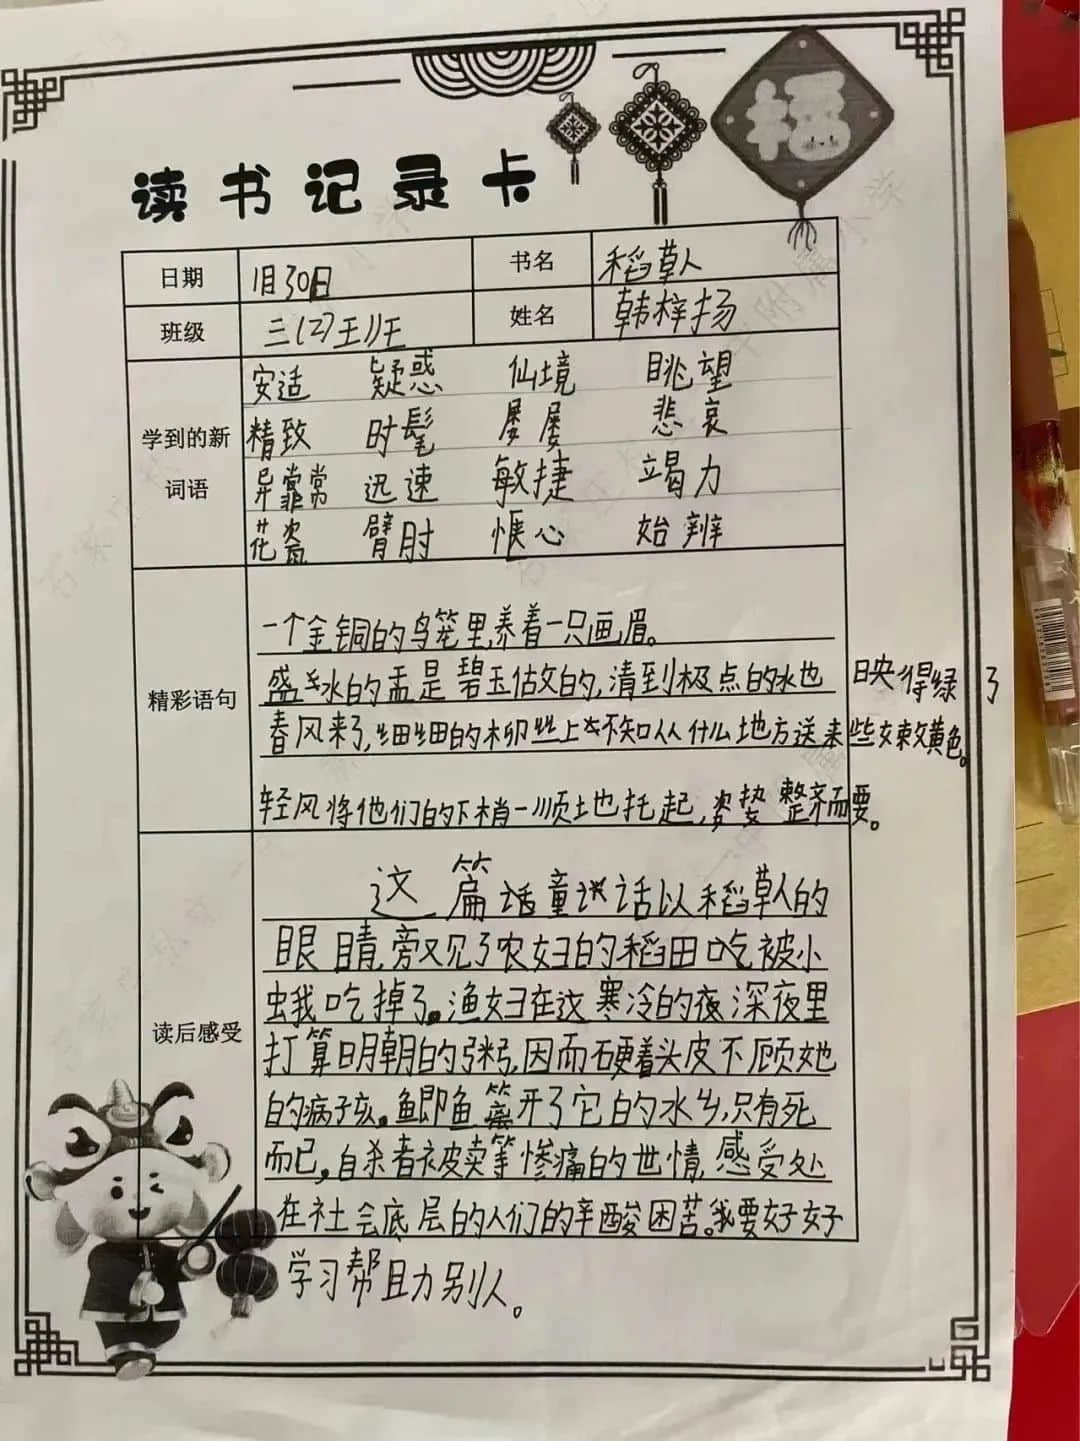 福
读书记录卡
日期 1月30日 书名 稻草人
班级 三(2)王川王 姓名 韩梓扬
学到的新词语
安适 疑惑 仙境 眺望
精致 时髦 屡屡 悲哀
异常 迅速 敏捷 竭力
花瓮 臂肘 惬心 始辨
精彩语句
一个金铜的鸟笼里养着一只画眉。
盛水的盂是碧玉做的,清到极点的水也映得绿了
春风来了,细细的柳丝上不知从什么地方送来些嫩黄色。
轻风将他们的下梢一顺地托起,姿势整齐而要。
读后感受
这篇童话以稻草人的
眼睛,旁又见了农妇的稻田吃被小
虫我吃掉了。渔妇在这寒冷的夜深夜里
打算明朝的粥,因而硬着头皮不顾她
的病孩。鲫鱼离开了它的水乡,只有死
而已,自杀者被卖等惨痛的世情,感受处
在社会底层的人们的辛酸困苦。我要好好
学习帮助别人。